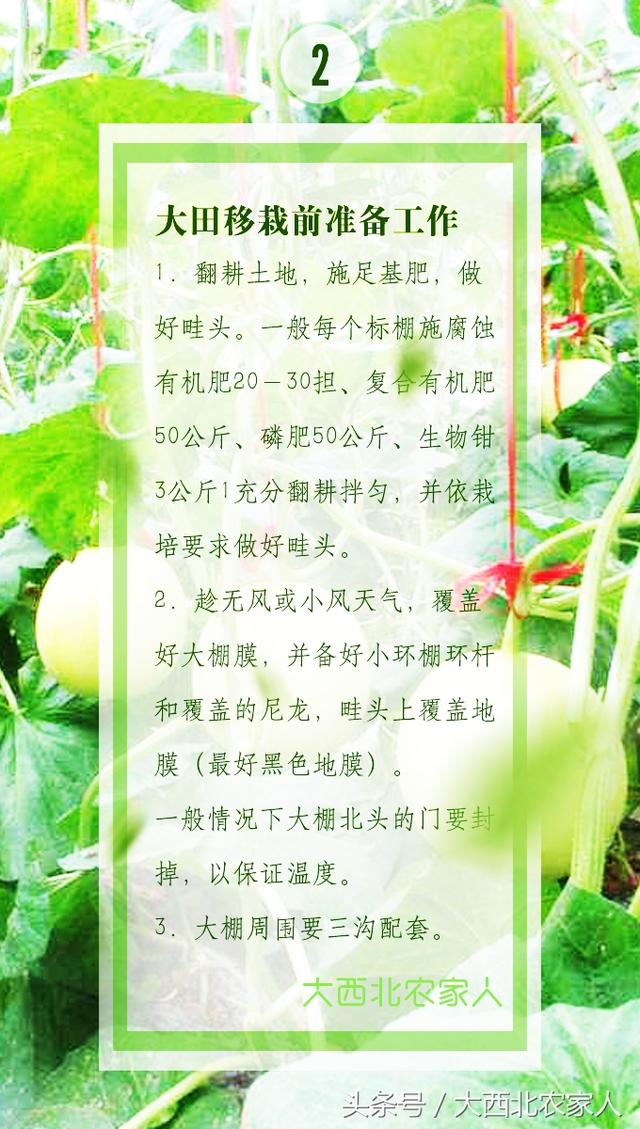 2
大田移栽前准备工作
1. 翻耕土地，施足基肥，做
好畦头。一般每个标棚施腐蚀
有机肥20－30担、复合有机肥
50公斤、磷肥50公斤、生物钳
3公斤1充分翻耕拌匀，并依栽
培要求做好畦头。
2. 趁无风或小风天气，覆盖
好大棚膜，并备好小环棚环杆
和覆盖的尼龙，畦头上覆盖地
膜（最好黑色地膜）。
一般情况下大棚北头的门要封
掉，以保证温度。
3. 大棚周围要三沟配套。
大西北农家人
头条号 / 大西北农家人